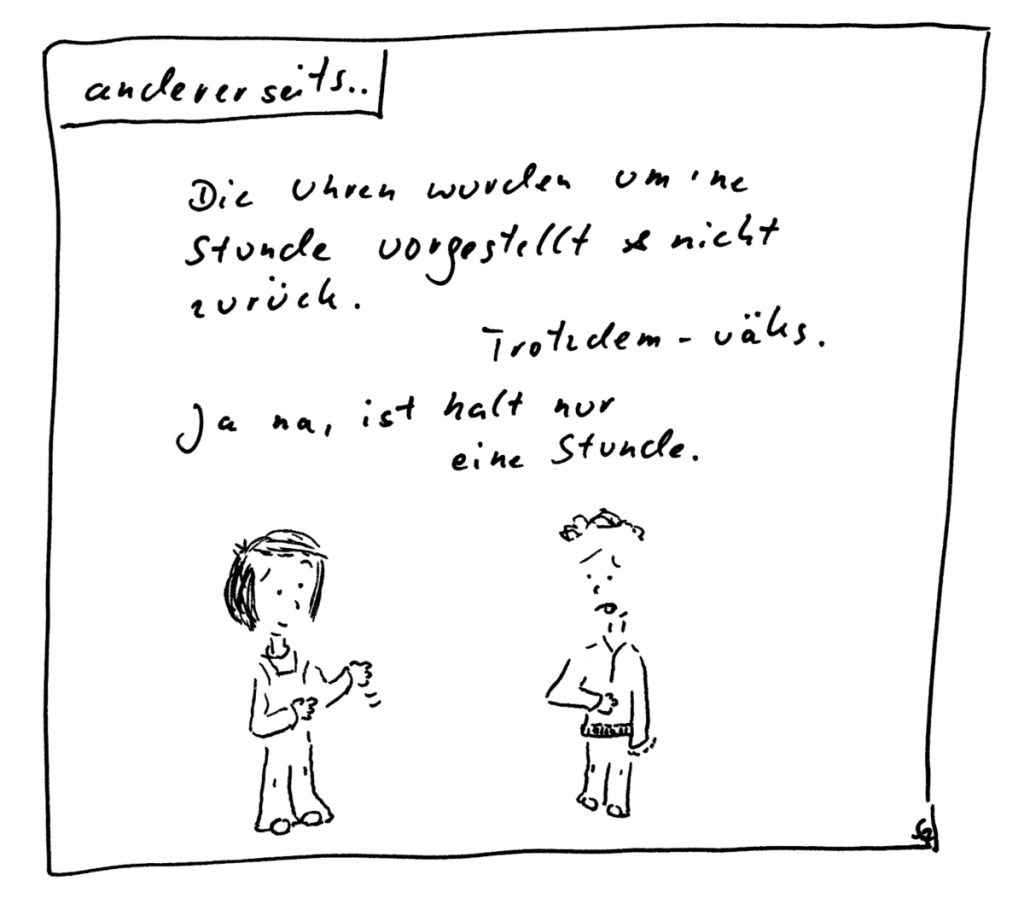 andererseits..
Die Uhren wurden um 'ne
Stunde vorgestellt & nicht
zurück.
Trotzdem - uäks.
Ja na, ist halt nur
eine Stunde.